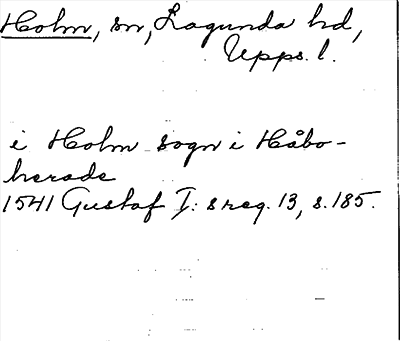 Holm, sn, Lagunda hd,
Upps. l.
i Holm sogn i Håbo-
herade
1541 Gustaf I: s reg. 13, s. 185.